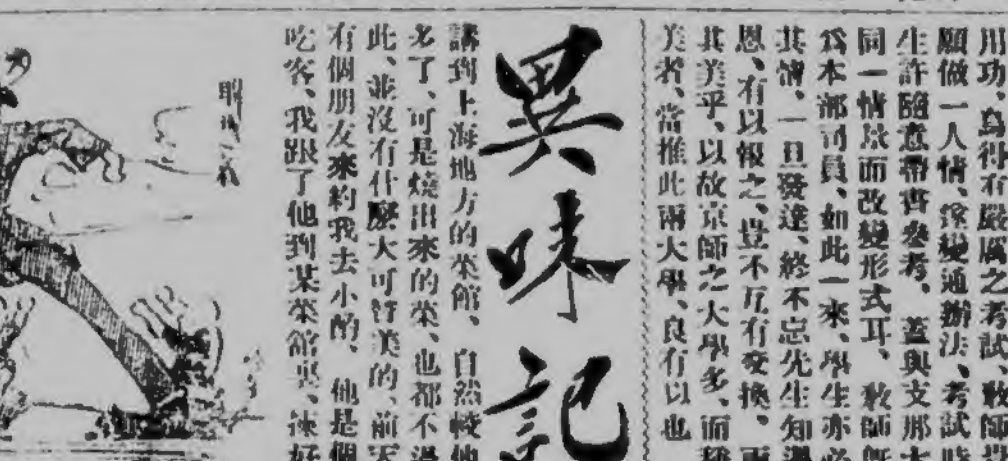 用功、烏得有嚴厲之考試、敎師
願做一人情、變通辦法、考試時
生許隨意帶書參考、蓋與支那大
同一情景而改變形式耳、敎師旣
爲本部司員、如此一來、學生亦必
其情、一旦發達、終不忘先生知遇
恩、有以報之、豈不互有交換、兩
其美乎、以故京師之大學多、而
美者、當推此兩大學、良有以也
異味記
講到上海地方的菜館、自然較他
多了、可是燒出來的菜、也都不過
此、並沒有什麼大可替美的、前天
有個朋友來約我去小酌、他是個
吃客、我跟了他到某菜館裏、揀好